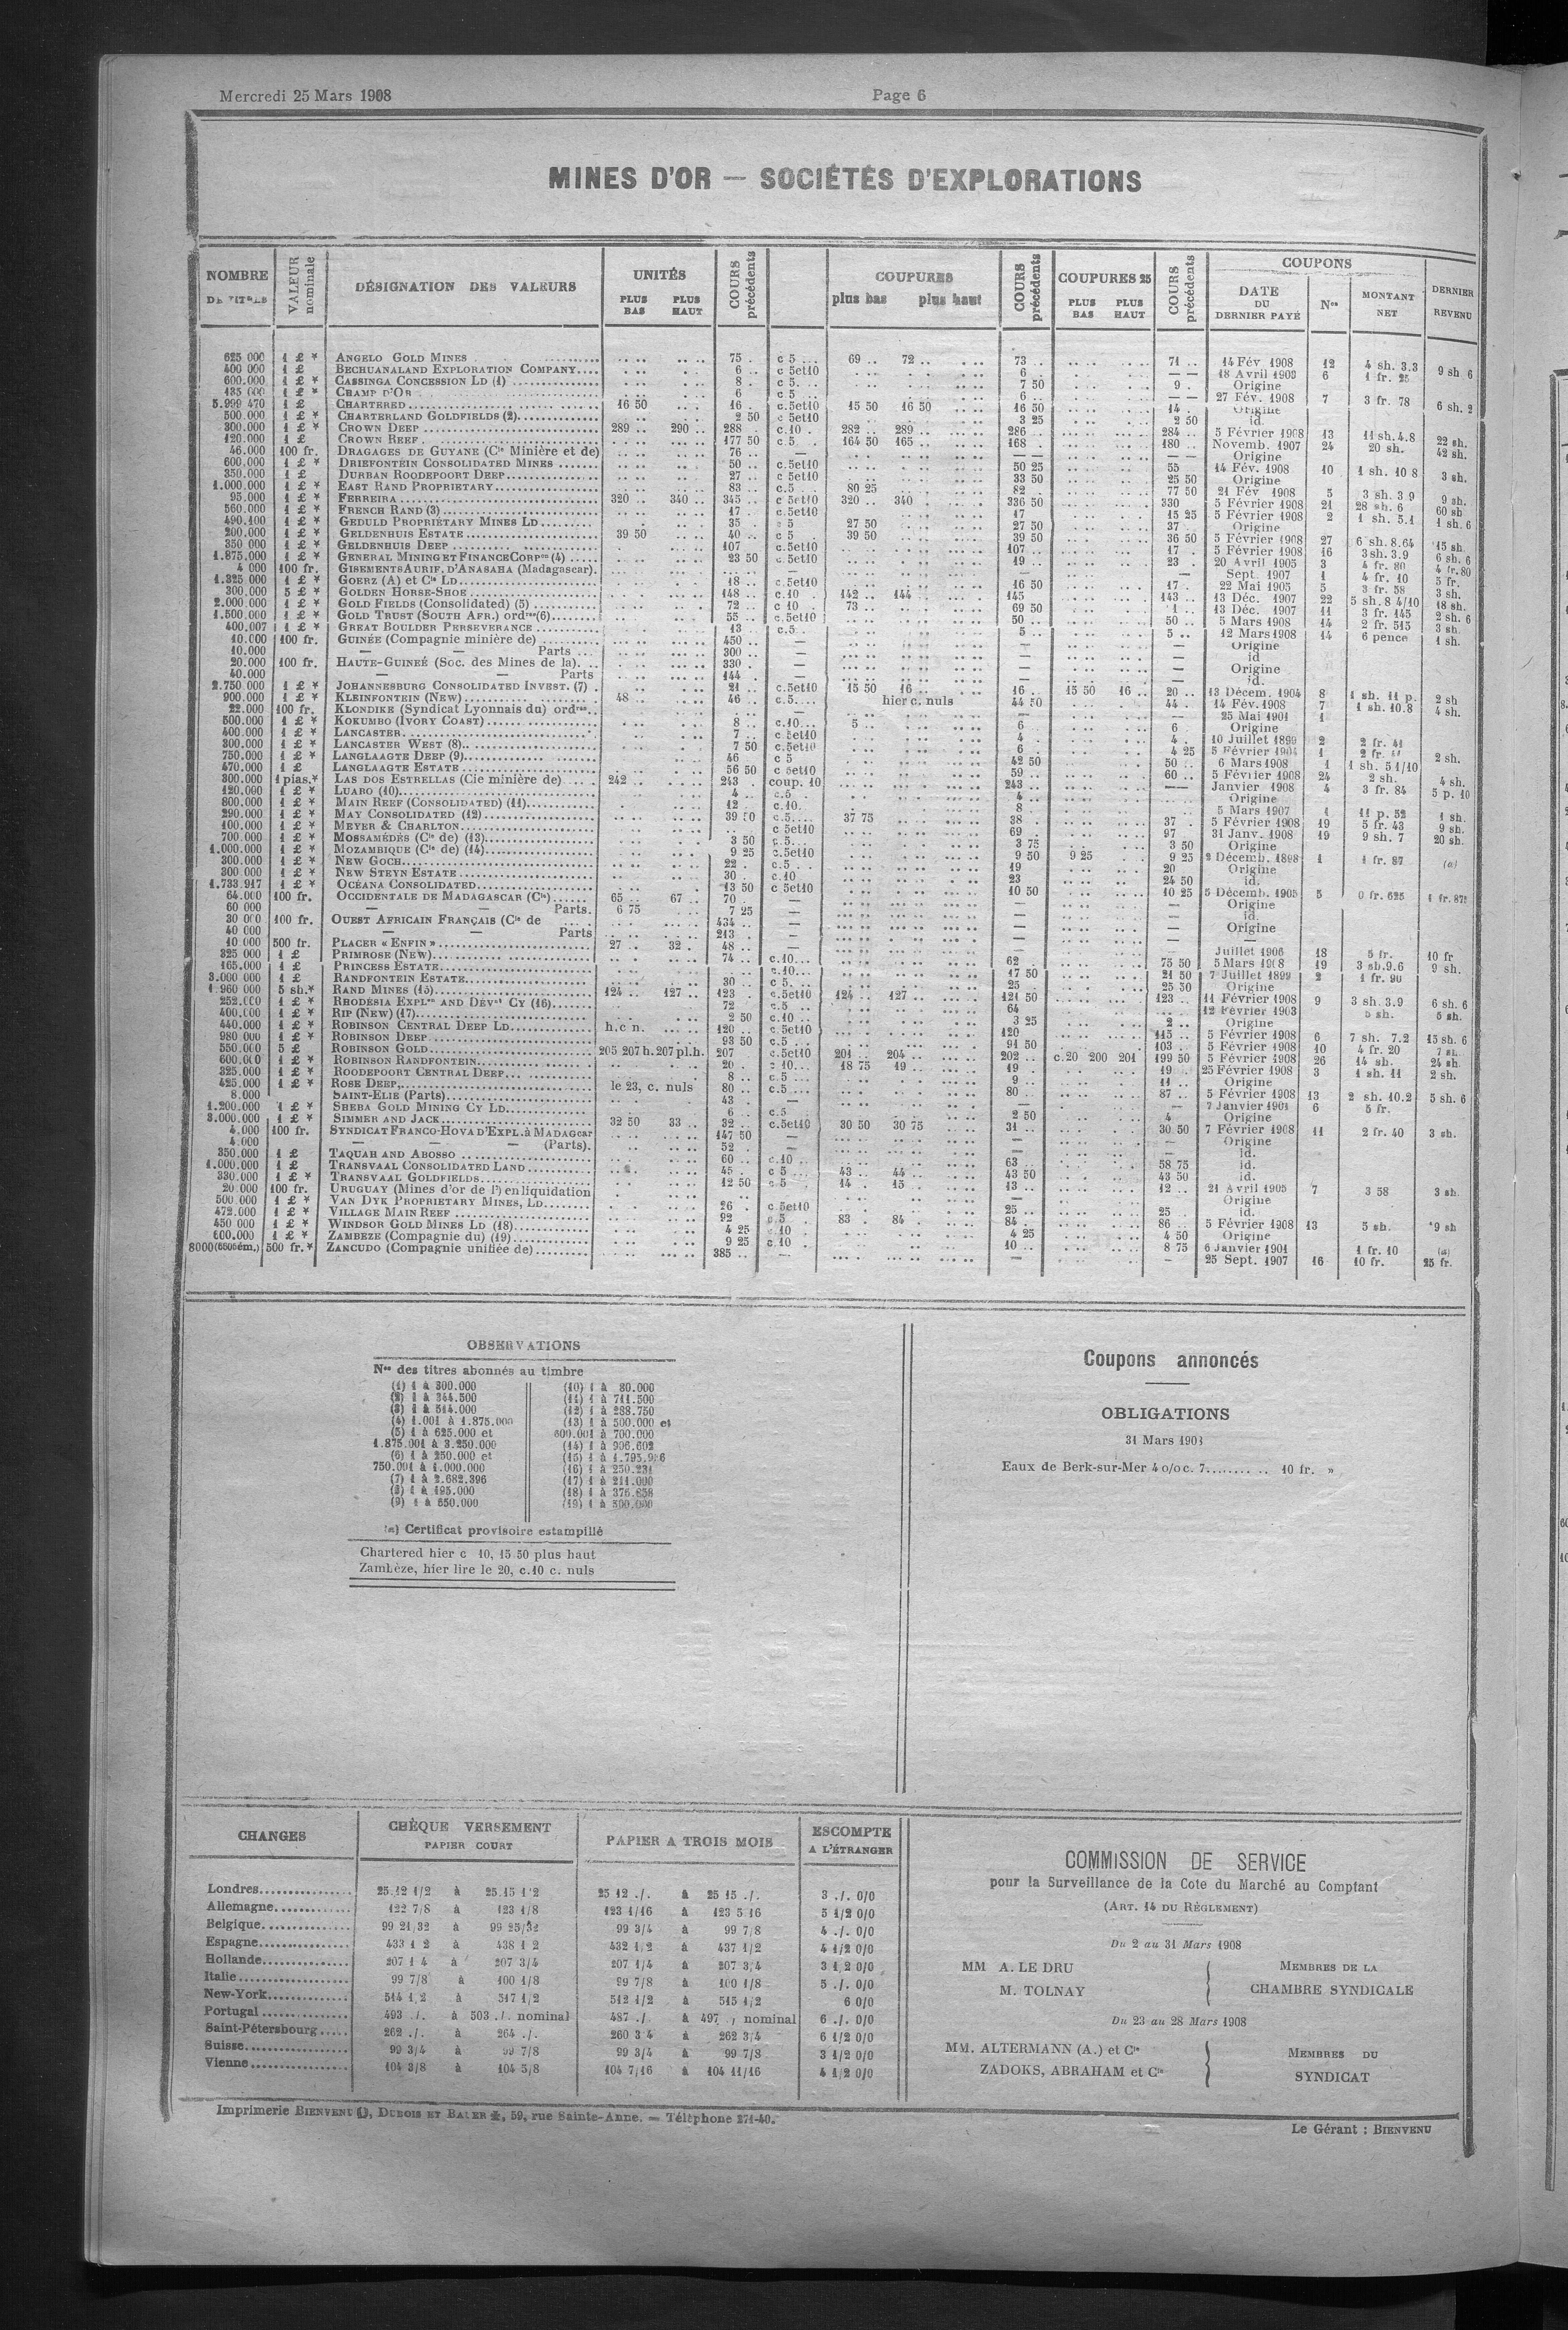 Mercredi 25 Mars 1908
Page 6
MINES D'OR — SOCIÉTÉS D'EXPLORATIONS
NOMBRE DE TITRES
VALEUR nominale
DÉSIGNATION DES VALEURS
UNITÉS
PLUS BAS PLUS HAUT
COURS précédents
COUPURES
plus bas plus haut
COURS précédents
COUPURES 25
PLUS BAS PLUS HAUT
COURS précédents
COUPONS
DATE DU DERNIER PAYÉ
Nos
MONTANT NET
DERNIER REVENU
625 000 1 £ * ANGELO GOLD MINES 75 . c 5 ... 69 .. 72 .. 73 .. 71 .. 14 Fév. 1908 12 4 sh. 3.3 9 sh 6
400 000 1 £ BECHUANALAND EXPLORATION COMPANY.... 6 .. c 5et10 6 .. — — 18 Avril 1903 6 1 fr. 25
600.000 1 £ * CASSINGA CONCESSION LD (1) 8 . c 5. 7 50 9 . Origine
135 000 1 £ * CHAMP D'OR 6 c 5 6 .. — — 27 Fév. 1908 7 3 fr. 78 6 sh. 2
5.999 470 1 £ CHARTERED 16 50 16 . c.5et10 15 50 16 50 16 50 14 . Origine
500.000 1 £ * CHARTERLAND GOLDFIELDS (2) 2 50 c 5et10 3 25 2 50 id.
300.000 1 £ * CROWN DEEP 289 .. 290 .. 288 c.10 . 282 .. 289 .. 286 .. 284 .. 5 Février 1908 13 11 sh.4.8 22 sh.
120.000 1 £ CROWN REEF 177 50 c.5 . 164 50 165 .. 168 . 180 .. Novemb. 1907 24 20 sh. 42 sh.
46.000 100 fr. DRAGAGES DE GUYANE (Cie Minière et de) 76 .. — — — — — Origine
600.000 1 £ * DRIEFONTEIN CONSOLIDATED MINES 50 .. c.5et10 50 25 55 14 Fév. 1908 10 1 sh. 10 8 3 sh.
350.000 1 £ DURBAN ROODEPOORT DEEP 27 .. c 5et10 33 50 25 50 Origine
1.000.000 1 £ * EAST RAND PROPRIETARY 83 .. c.5 . 80 25 82 .. 77 50 21 Fév 1908 5 3 sh. 3 9 9 sh.
95.000 1 £ * FERREIRA 320 .. 340 .. 345 .. c 5et10 320 .. 340 . 336 50 330 5 Février 1908 21 28 sh. 6 60 sh
560.000 1 £ * FRENCH RAND (3) 17 c.5et10 17 15 25 5 Février 1908 2 1 sh. 5.1 1 sh. 6
490.400 1 £ * GEDULD PROPRIETARY MINES LD 35 . c 5 27 50 27 50 37 . Origine
200.000 1 £ * GELDENHUIS ESTATE 39 50 40 .. c 5 . 39 50 39 50 36 50 5 Février 1908 27 6 sh. 8.64 15 sh
350 000 1 £ * GELDENHUIS DEEP 107 c.5et10 107 .. 17 . 5 Février 1908 16 3sh. 3.9 6 sh. 6
1.875.000 1 £ * GENERAL MINING ET FINANCE CORPon (4) 23 50 c.5et10 19 .. 23 . 20 Avril 1905 3 4 fr. 80 4 fr.80
4 000 100 fr. GISEMENTS AURIF. D'ANASAHA (Madagascar). — — Sept. 1907 1 4 fr. 10 5 fr.
1.325 000 1 £ * GOERZ (A) et Cie LD 18 .. c.5et10 16 50 17 .. 22 Mai 1905 5 3 fr. 58 3 sh.
300.000 5 £ * GOLDEN HORSE-SHOE 148 .. c.10 . 142 .. 144 145 143 .. 13 Déc. 1907 22 5 sh. 8 4/10 18 sh.
2.000.000 1 £ * GOLD FIELDS (Consolidated) (5) 72 .. c 10 . 73 .. 69 50 13 Déc. 1907 11 3 fr. 145 2 sh. 6
1.500.000 1 £ * GOLD TRUST (SOUTH AFR.) ordres(6) 55 .. c.5et10 50 .. 50 .. 5 Mars 1908 14 2 fr. 515 3 sh
400.007 1 £ * GREAT BOULDER PERSEVERANCE 13 .. c.5.. 5 .. 5 .. 12 Mars1908 14 6 pence 1 sh.
10.000 100 fr. GUINÉE (Compagnie minière de) 450 .. — — — Origine
10.000 — — Parts 300 .. — — — id
20.000 100 fr. HAUTE-GUINEÉ (Soc. des Mines de la). 330 . — — — Origine
40.000 — — Parts 144 . — — — id.
2.750.000 1 £ * JOHANNESBURG CONSOLIDATED INVEST. (7) 21 .. c.5et10 15 50 16 .. 16 . 15 50 16 .. 20 .. 13 Décem. 1904 8 1 sh. 11 p. 2 sh
900.000 1 £ * KLEINFONTEIN (NEW) 48 .. 46 .. c.5.... hier c. nuls 44 50 44 . 14 Fév. 1908 7 1 sh. 10.8 4 sh.
22.000 100 fr. KLONDIKE (Syndicat Lyonnais du) ordres — — 25 Mai 1901 1
500.000 1 £ * KOKUMBO (IVORY COAST) 8 .. c.10... 5 .. 6 6 Origine
400.000 1 £ * LANCASTER 7 .. c 5et10 4 .. 4 . 10 Juillet 1899 2 2 fr. 41
300.000 1 £ * LANCASTER WEST (8) 7 50 c.5et10 6 . 4 25 5 Février 1904 1
750.000 1 £ * LANGLAAGTE DEEP (9) 46 c 5 42 50 50 .. 6 Mars 1908 1 1 sh. 5 1/10 2 sh.
470.000 1 £ LANGLAAGTE ESTATE 56 50 c 5et10 59 .. 60 .. 5 Février 1908 24 2 sh. 4 sh.
300.000 1 pias.* LAS DOS ESTRELLAS (Cie minière de) 242 .. 243 . coup. 10 243 .. — — Janvier 1908 4 3 fr. 84 5 p. 10
120.000 1 £ * LUABO (10) 4 .. c.5 . 4 .. Origine
800.000 1 £ * MAIN REEF (CONSOLIDATED) (11) 12 . c.10. 8 5 Mars 1907 1 11 p. 52 1 sh.
290.000 1 £ * MAY CONSOLIDATED (12) 39 50 c.5.... 37 75 38 . 37 . 5 Février 1908 19 5 fr. 43 9 sh.
100.000 1 £ * MEYER & CHARLTON c 5et10 69 . 97 31 Janv. 1908 19 9 sh. 7 20 sh.
700.000 1 £ * MOSSAMÉDÈS (Cie de) (13) 3 50 c.5... 3 75 3 50 Origine
1.000.000 1 £ * MOZAMBIQUE (Cie de) (14) 9 25 c.5et10 9 50 9 25 9 25 2 Décemb. 1898 1 1 fr. 87 (a)
300.000 1 £ * NEW GOCH 22 . c.5 . . 19 20 Origine
300 000 1 £ * NEW STEYN ESTATE 30 . c.10 23 24 50 id.
1.733.917 1 £ * OCÉANA CONSOLIDATED 13 50 c 5et10 10 50 10 25 5 Décemb. 1905 5 0 fr. 625
64.000 100 fr. OCCIDENTALE DE MADAGASCAR (Cie) 65 .. 67 .. 70 . — — — Origine
60 000 — — Parts. 6 75 7 25 — — — id.
30 000 100 fr. OUEST AFRICAIN FRANÇAIS (Cie de 434 .. — — — Origine
40 000 — — Parts 213 — — —
10.000 500 fr. PLACER « ENFIN » 27 .. 32 . 48 .. — — — Juillet 1906 18 5 fr. 10 fr
325 000 1 £ PRIMROSE (NEW) 74 .. c.10... 62 75 50 5 Mars 1908 19 3 sh.9.6 9 sh.
165.000 1 £ PRINCESS ESTATE c.10... 17 50 21 50 7 Juillet 1899 2 1 fr. 90
3.000 000 1 £ RANDFONTEIN ESTATE 30 .. c 5. 25 25 50 Origine
1 960 000 5 sh.* RAND MINES (15) 124 .. 127 .. 123 . c.5et10 124 .. 127 .. 121 50 123 .. 11 Février 1908 9 3 sh. 3.9 6 sh. 6
252.000 1 £ * RHODÉSIA EXPLon AND DÉVnt CY (16) 72 c.5 .. 64 12 Février 1903 5 sh. 5 sh.
400.000 1 £ * RIP (NEW) (17) 2 50 c.10 .. 3 25 2 .. Origine
440.000 1 £ * ROBINSON CENTRAL DEEP LD h.c n. 120 .. c.5et10 120 115 .. 5 Février 1908 6 7 sh. 7.2 15 sh. 6
980 000 1 £ * ROBINSON DEEP 93 50 c.5 ... 91 50 103 . 5 Février 1908 10 4 fr. 20 7 sh.
550.000 5 £ ROBINSON GOLD 205 207 h.207 pl.h. 207 c.5et10 201 .. 204 .. 202 .. c.20 200 201 199 50 5 Février 1908 26 14 sh. 24 sh
600.000 1 £ * ROBINSON RANDFONTEIN 20 . c.10... 18 75 19 .. 19 . 19 . 25 Février 1908 3 1 sh. 11 2 sh.
325.000 1 £ * ROODEPOORT CENTRAL DEEP 8 .. c.5 ... 9 .. 11 .. Origine
425.000 1 £ * ROSE DEEP le 23, c. nuls 80 .. c.5.... 80 .. 87 .. 5 Février 1908 13 2 sh. 10.2 5 sh. 6
8.000 SAINT-ELIE (Parts) 43 . — — — 7 Janvier 1901 6 5 fr.
1.200.000 1 £ * SHEBA GOLD MINING CY LD 6 .. c.5 2 50 4 Origine
3.000.000 1 £ * SIMMER AND JACK 32 50 33 .. 32 .. c.5et10 30 50 30 75 31 .. 30 50 7 Février 1908 11 2 fr. 40 3 sh.
4.000 100 fr. SYNDICAT FRANCO-HOVA D'EXPL. à MADAGcar 147 50 — — — Origine
4.000 — — — (Parts). 52 . — — — id.
350.000 1 £ TAQUAH AND ABOSSO 60 .. c.10 .. 63 58 75 id.
1.000.000 1 £ TRANSVAAL CONSOLIDATED LAND 45 . c 5 ... 43 .. 44 .. 43 50 43 50 id.
330.000 1 £ * TRANSVAAL GOLDFIELDS 12 50 c.5 14 . 15 . 13 .. 12 .. 21 Avril 1905 7 3 58 3 sh
20 000 100 fr. URUGUAY (Mines d'or de l') en liquidation Origine
500 000 1 £ * VAN DYK PROPRIETARY MINES, LD 26 . c.5et10 25 .. 25 . id.
472.000 1 £ * VILLAGE MAIN REEF 92 c.5 . 83 . 84 . 84 . 86 .. 5 Février 1908 13 5 sh. 9 sh
450 000 1 £ * WINDSOR GOLD MINES LD (18) 4 25 c.10 . 4 25 4 50 Origine
600.000 1 £ * ZAMBÈZE (Compagnie du) (19) 9 25 c.10 10 .. 8 75 6 Janvier 1901 1 fr. 10 (a)
8000(6505 ém.) 500 fr.* ZANCUDO (Compagnie unifiée de) 385 .. — — — 25 Sept. 1907 16 10 fr. 25 fr.
OBSERVATIONS
Nos des titres abonnés au timbre
(1) 1 à 300.000
(2) 1 à 344.500
(3) 1 à 514.000
(4) 1.001 à 1.875.000
(5) 1 à 625.000 et
1.875.001 à 3.250.000
(6) 1 à 250.000 et
750.001 à 1.000.000
(7) 1 à 2.682.396
(8) 1 à 195.000
(9) 1 à 650.000
(10) 1 à 80.000
(11) 1 à 711.500
(12) 1 à 288.750
(13) 1 à 500.000 et
600.001 à 700.000
(14) 1 à 906.602
(15) 1 à
(16) 1 à 250.231
(17) 1 à 211.000
(18) 1 à 376.658
(19) 1 à 500.000
(a) Certificat provisoire estampillé
Chartered hier c 10, 15 50 plus haut
Zambèze, hier lire le 20, c.10 c. nuls
Coupons annoncés
OBLIGATIONS
31 Mars 1903
Eaux de Berk-sur-Mer 4 o/o c. 7.......... 10 fr. »
CHANGES
CHÈQUE VERSEMENT
PAPIER COURT
PAPIER A TROIS MOIS
ESCOMPTE
A L'ÉTRANGER
Londres 25.12 1/2 à 25.15 1/2 25 12 ./. à 25 15 ./. 3 ./. 0/0
Allemagne 122 7/8 à 123 1/8 123 1/16 à 123 5 16 5 1/2 0/0
Belgique 99 21/32 à 99 25/32 99 3/4 à 99 7/8 4 ./. 0/0
Espagne 433 1 2 à 438 1 2 432 1/2 à 437 1/2 4 1/2 0/0
Hollande 207 1 4 à 207 3/4 207 1/4 à 207 3/4 3 1 2 0/0
Italie 99 7/8 à 100 1/8 99 7/8 à 100 1/8 5 ./. 0/0
New-York 514 1/2 à 517 1/2 512 1/2 à 515 1/2 6 0/0
Portugal 493 ./. à 503 ./. nominal 487 ./ à 497 , nominal 6 ./. 0/0
Saint-Pétersbourg 262 ./. à 264 ./. 260 3 4 à 262 3/4 6 1/2 0/0
Suisse 99 3/4 à 99 7/8 99 3/4 à 99 7/8 3 1/2 0/0
Vienne 104 3/8 à 104 5/8 104 7/16 à 104 11/16 4 1/2 0/0
COMMISSION DE SERVICE
pour la Surveillance de la Cote du Marché au Comptant
(ART. 14 DU RÈGLEMENT)
Du 2 au 31 Mars 1908
MM A. LE DRU
M. TOLNAY
MEMBRES DE LA
CHAMBRE SYNDICALE
Du 23 au 28 Mars 1908
MM. ALTERMANN (A.) et Cie
ZADOKS, ABRAHAM et Cie
MEMBRES DU
SYNDICAT
Imprimerie BIENVENU, DUBOIS ET BAUER, 59, rue Sainte-Anne. — Téléphone 271-40.
Le Gérant : BIENVENU